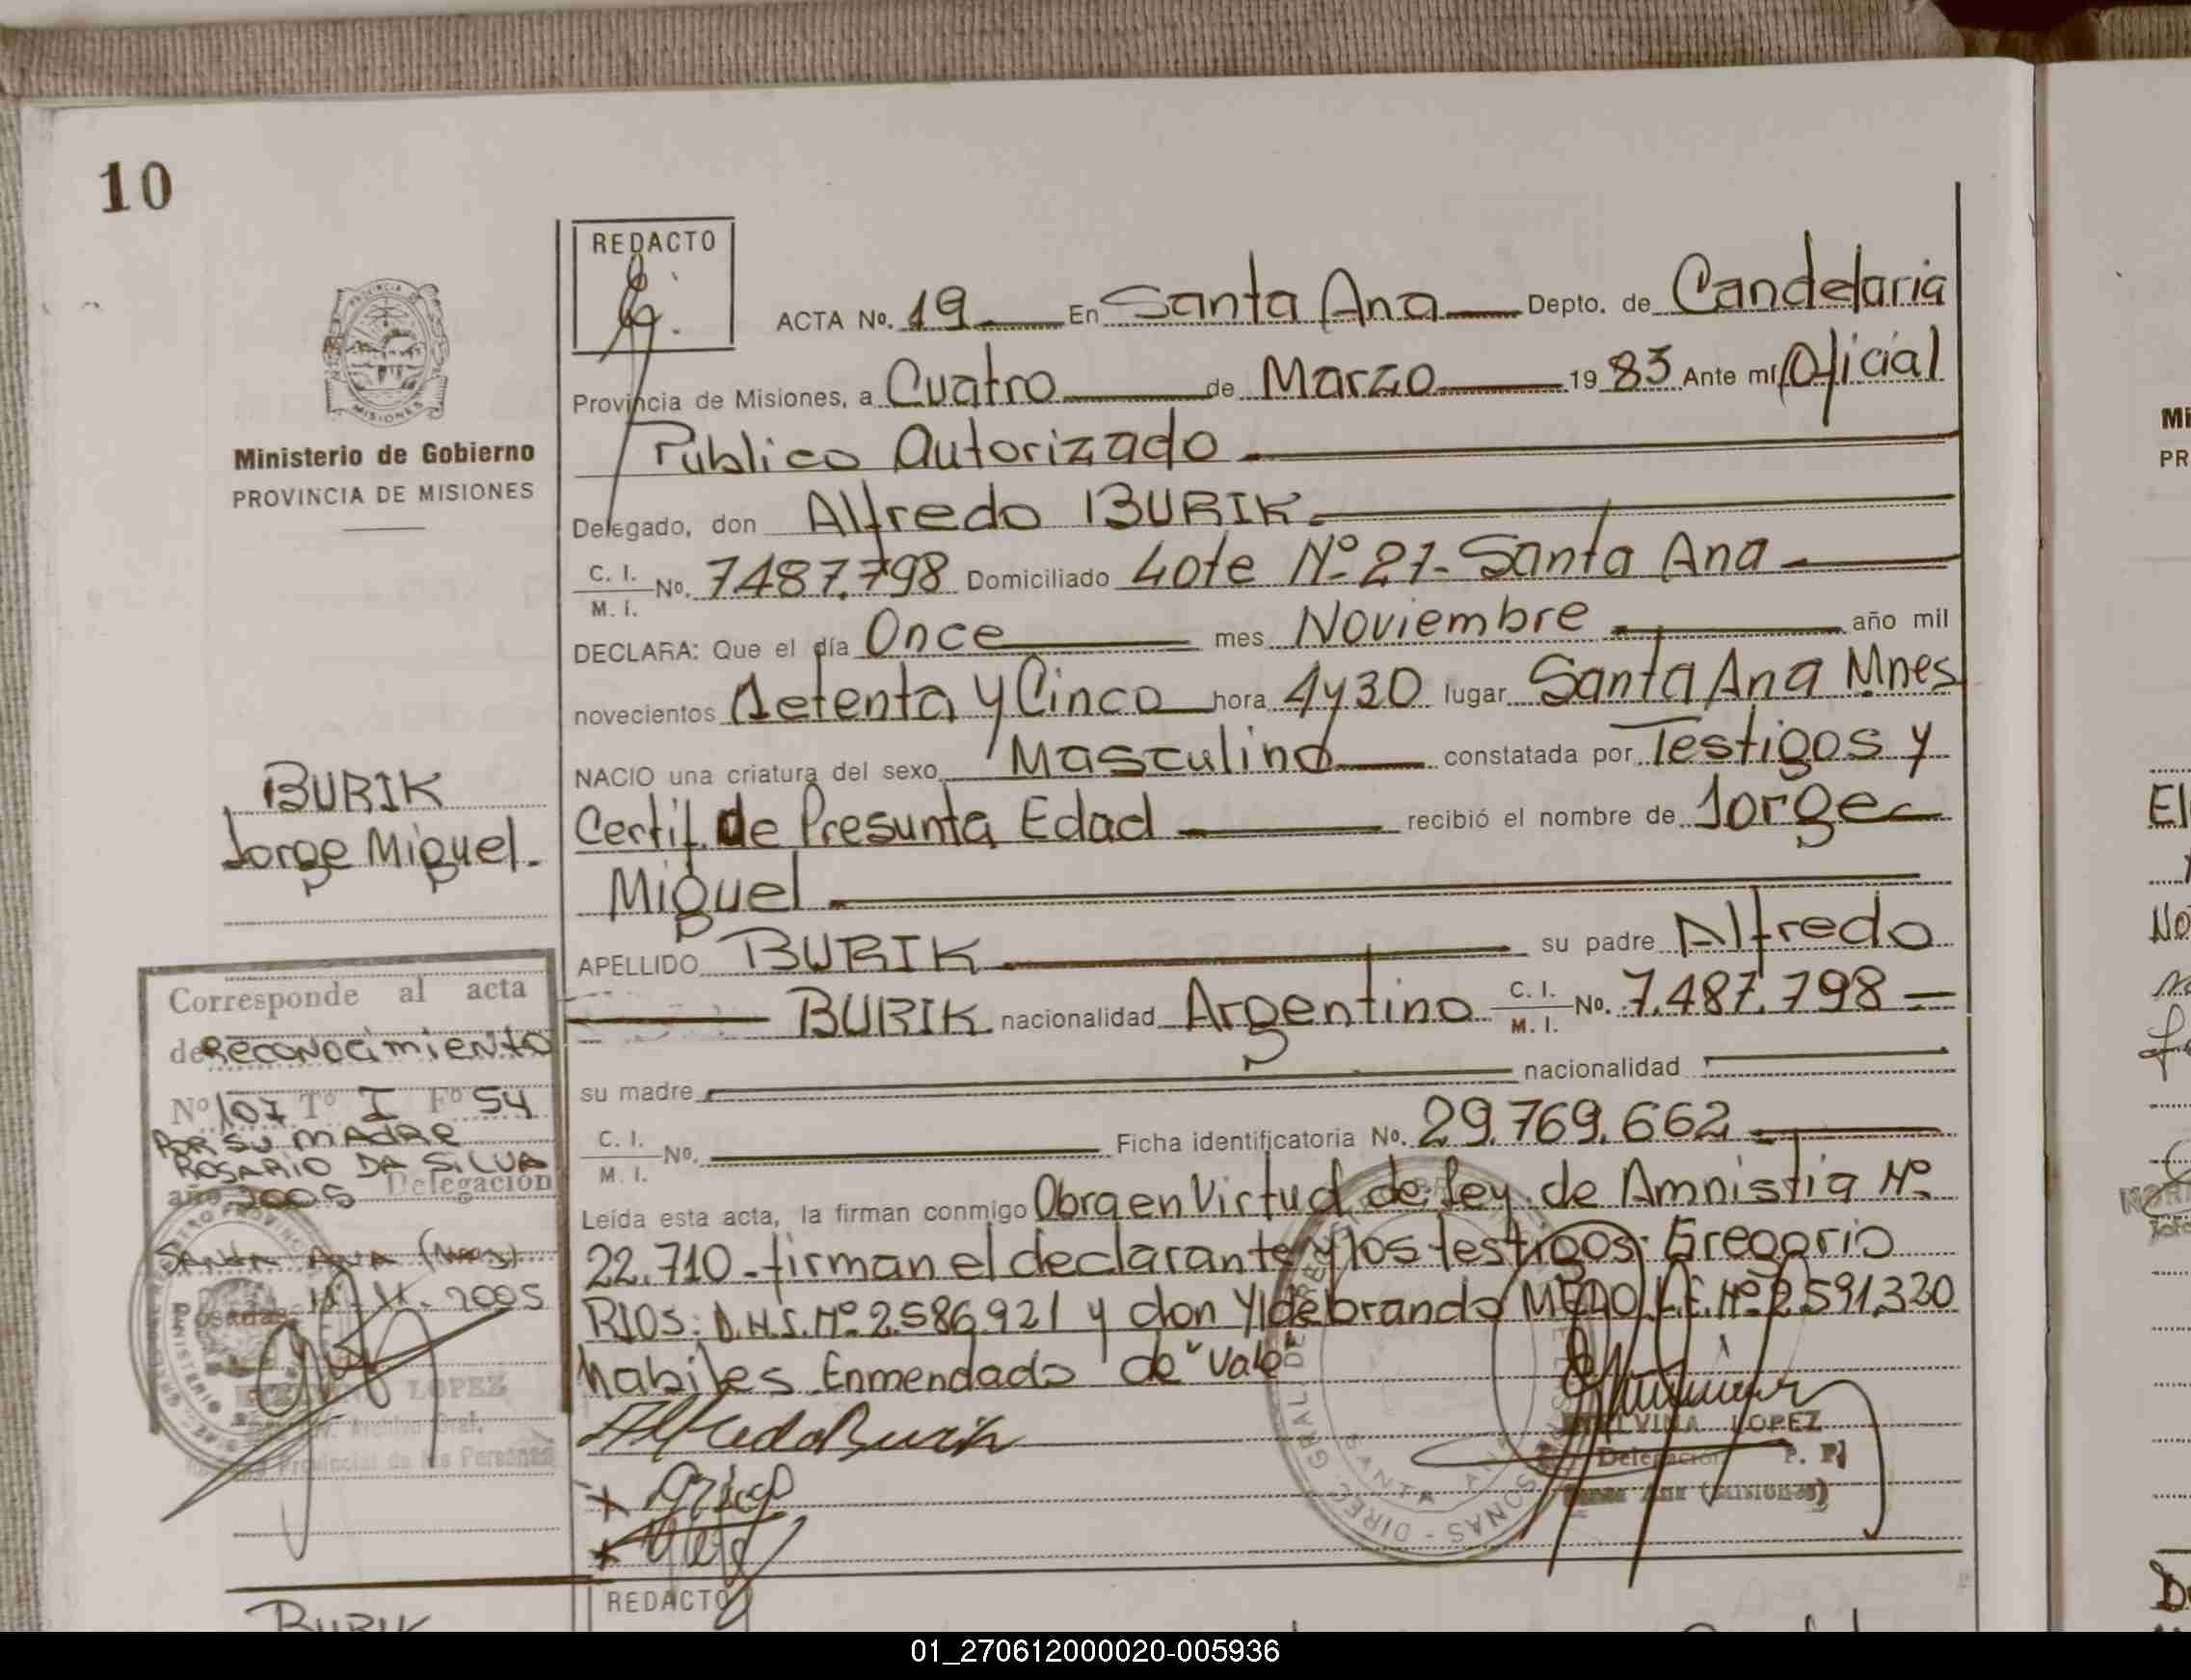 10
REDACTO
ACTA No. 19 En Santa Ana Depto. de Candelaria
Provincia de Misiones, a Cuatro de Marzo 1983 Ante mí, Oficial
Publico Autorizado
Delegado, don Alfredo BURIK
C. I.
M. I. No. 7487.798 Domiciliado Lote Nº 27- Santa Ana
DECLARA: Que el día Once mes Noviembre año mil
novecientos Setenta y Cinco hora 4 y 30 lugar Santa Ana Mnes
NACIO una criatura del sexo Masculino constatada por Testigos y
Certif. de Presunta Edad recibió el nombre de Jorge
Miguel
APELLIDO BURIK su padre Alfredo
BURIK nacionalidad Argentino C. I. M. I. No. 7.487.798
su madre nacionalidad
C. I.
M. I. No. Ficha identificatoria No. 29.769.662
Leída esta acta, la firman conmigo Obra en Virtud de Ley de Amnistia Nº
22.710 - firman el declarante y los testigos: Gregorio
RIOS: D.N.I. Nº 2.586.921 y don Yldebrando L.E. Nº 2.591.320
habiles Enmendado "de" Vale
Alfredo Burik
LOPEZ
Delegacion
Santa Ana (Misiones)
SANTA ANA
MISIONES
Ministerio de Gobierno
PROVINCIA DE MISIONES
BURIK
Jorge Miguel.
Corresponde al acta
de Reconocimiento
Nº 107 Tº I Fº 54
POR SU MADRE
ROSARIO DA SILVA
año 2005 Delegación
SANTA ANA (Mnes)
Posadas 2005
LOPEZ
Archivo Gral.
Provincial de las Personas
REDACTO
BURIK
Mi
PR
01_270612000020-005936